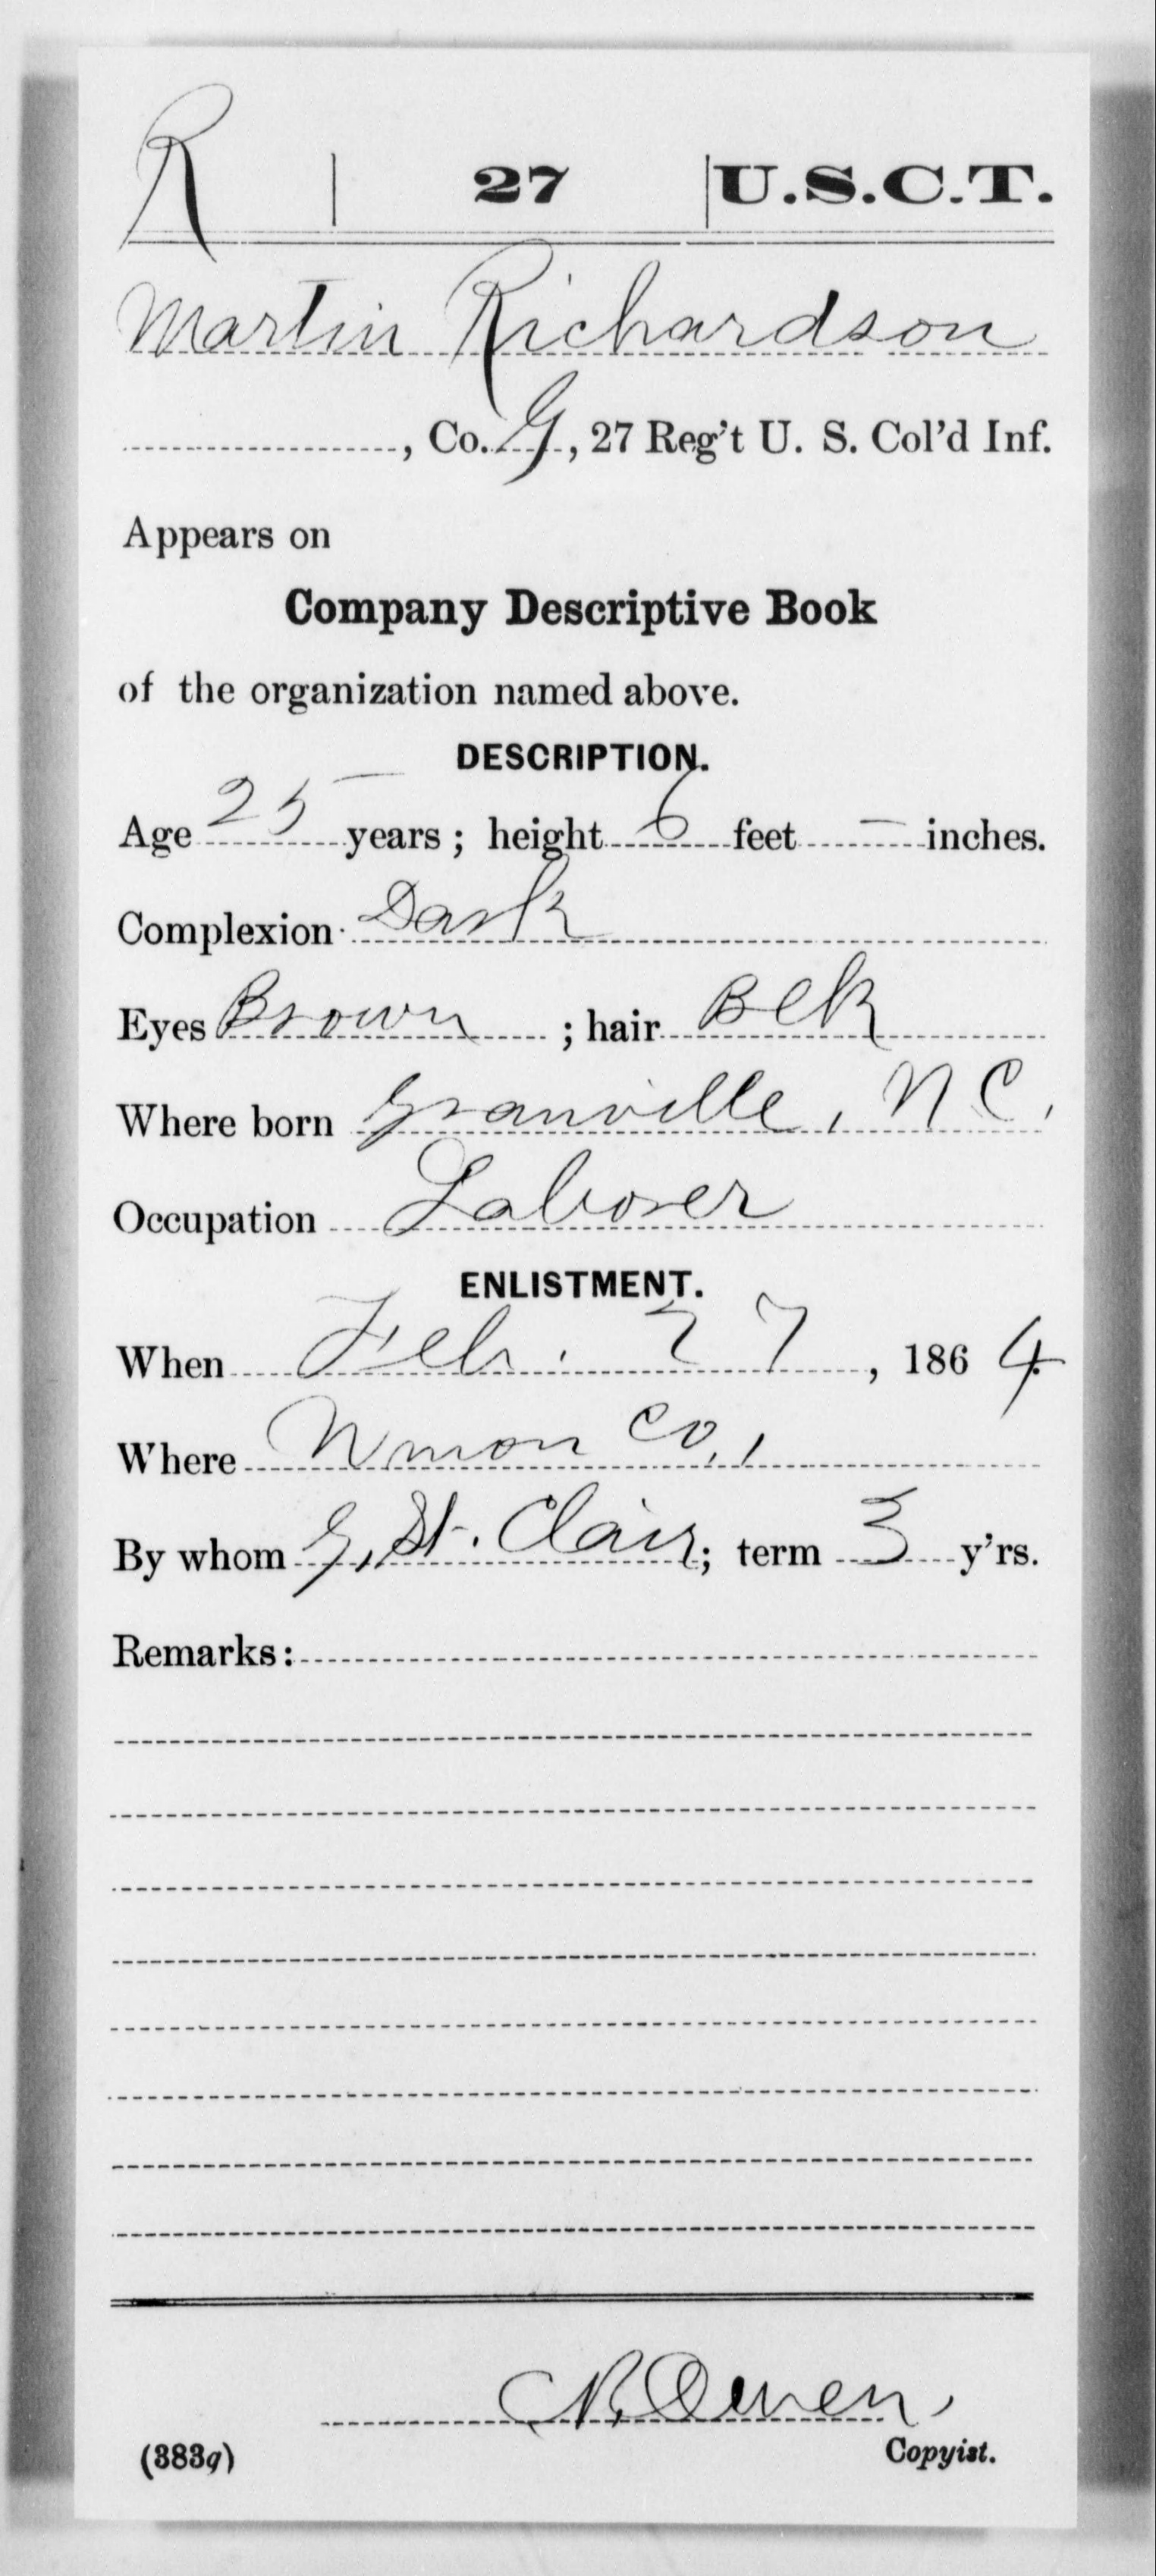 R 27 U.S.C.T.
Martin Richardson
, Co. G, 27 Reg't U. S. Col'd Inf.
Appears on
Company Descriptive Book
of the organization named above.
DESCRIPTION.
Age 25 years; height 6 feet — inches.
Complexion Dark
Eyes Brown ; hair Blk
Where born Granville, N C,
Occupation Laborer
ENLISTMENT.
When Feb. 27, 1864
Where Union Co.,
By whom G, St. Clair; term 3 y'rs.
Remarks:
Owen,
(383g) Copyist.